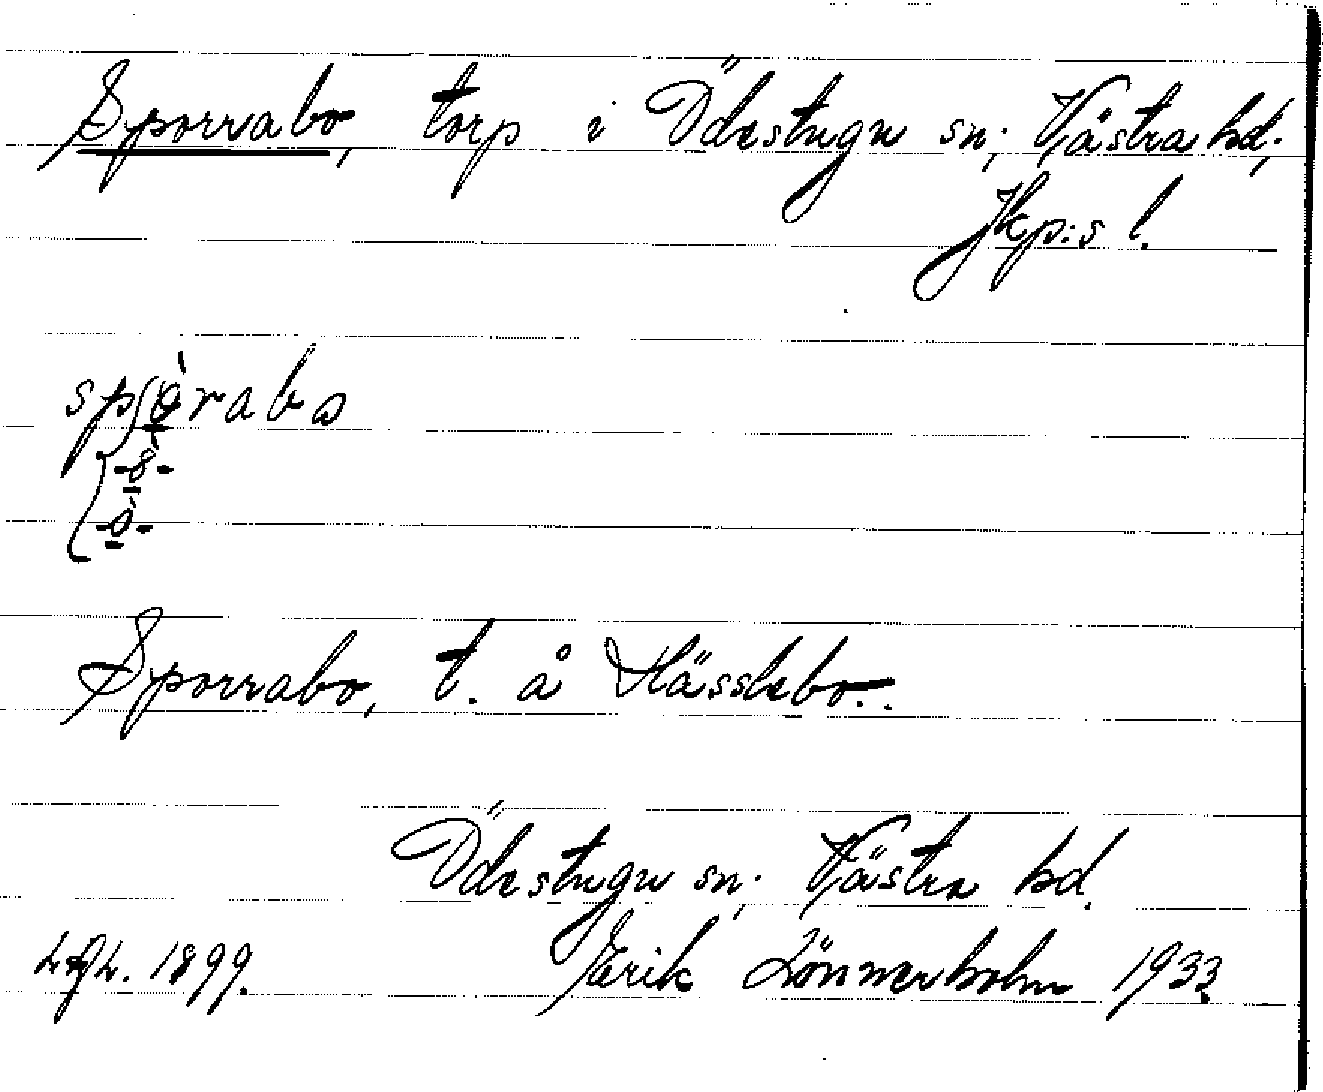 Sporrabo, torp i Ödestugu sn; Västra hd;
Jkp:s l.
spòrabo
-8̀-
-ò-
Sporrabo, t. å Hässlebo.
Ödestugu sn; Västra hd.
1899. Erik Lönnerholm 1933